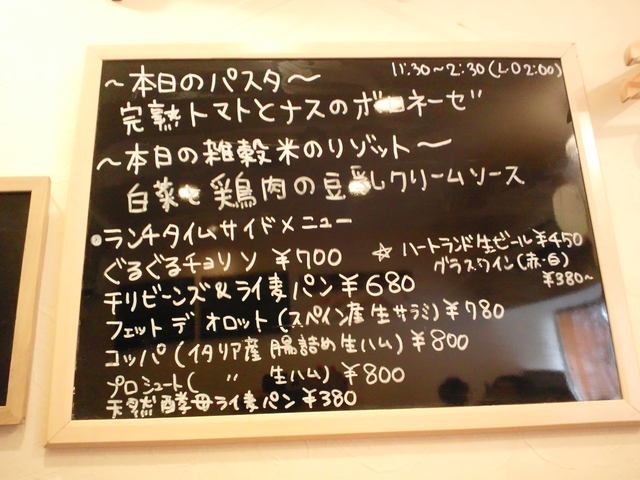 ～本日のパスタ～
11:30～2:30(L.O 2:00)
完熟トマトとナスのボロネーゼ
～本日の雑穀米のリゾット～
白菜と鶏肉の豆乳クリームソース
●ランチタイムサイドメニュー
ぐるぐるチョリソ ¥700
☆ ハートランド生ビール ¥450
グラスワイン(赤・白)
¥380～
チリビーンズ&ライ麦パン ¥680
フェットデオロット(スペイン産生サラミ) ¥780
コッパ(イタリア産腸詰め生ハム) ¥800
プロシュート( 〃 生ハム) ¥800
天然酵母ライ麦パン ¥380